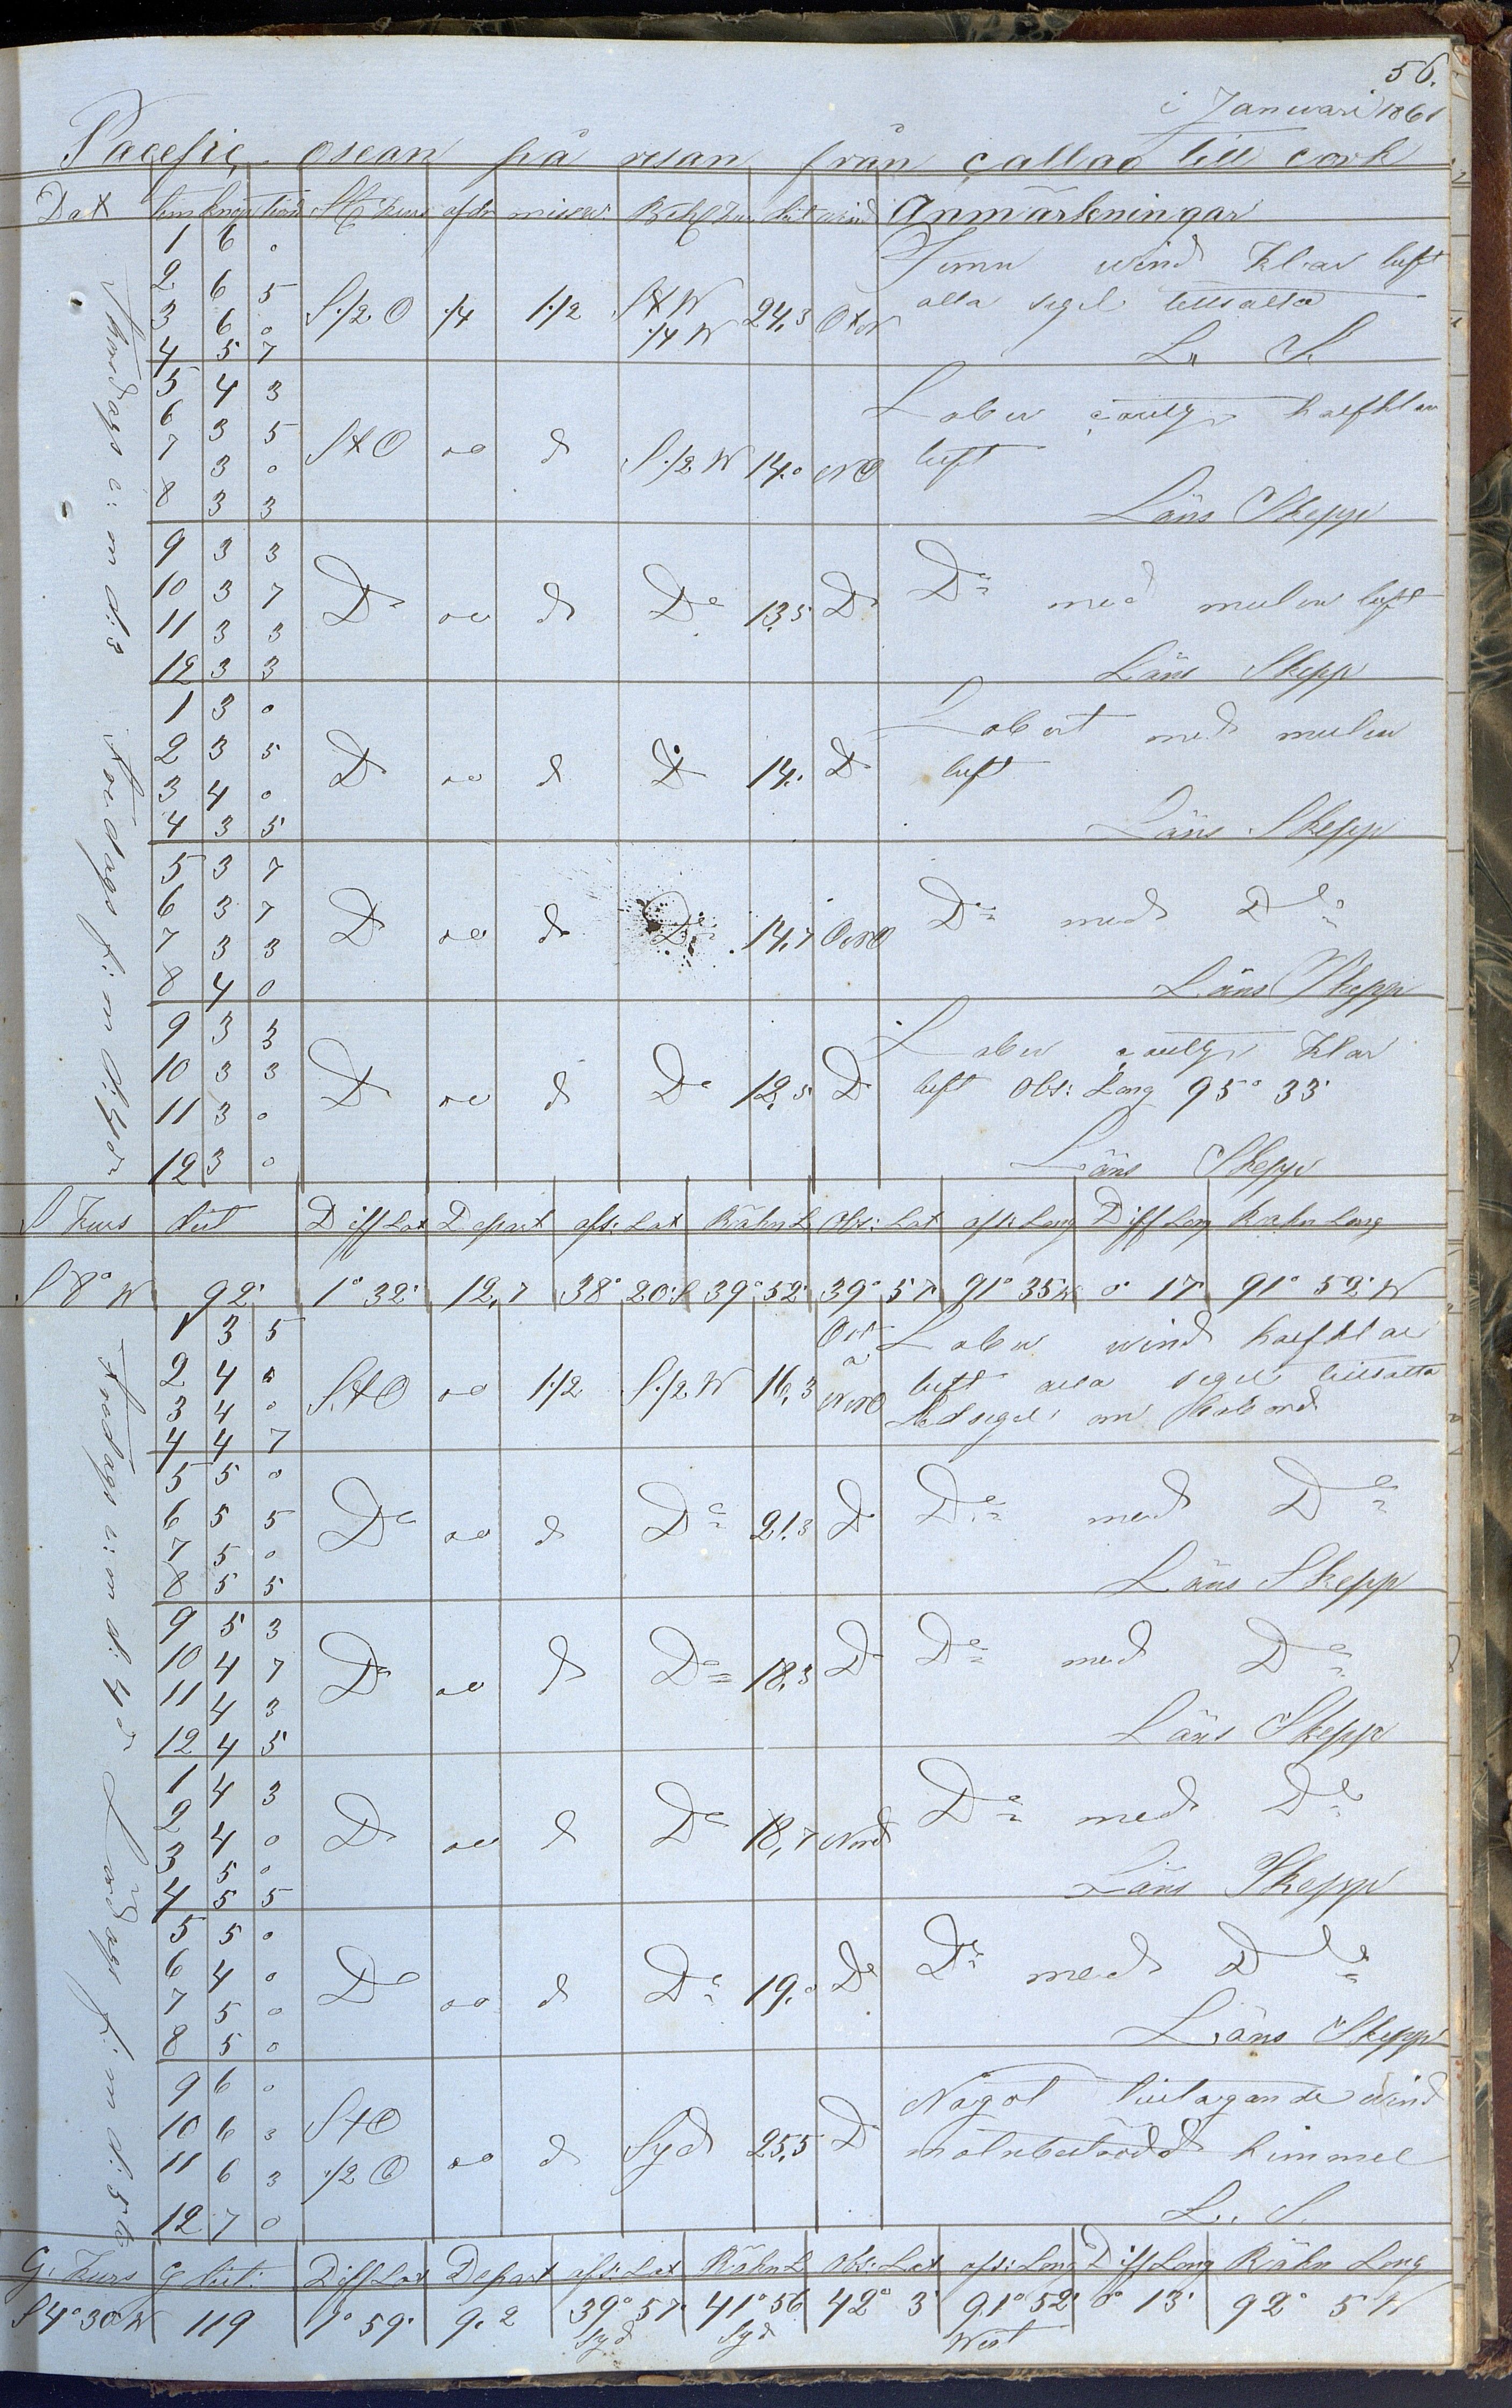 56.
i Januari 1861
Pacefiç osean på resan från çallao till cork
Dat tim knop St kurs afdr missv Beh Ku dist vind Anmärkningar
Thordags e: m d: 3
1 6 0 Jemn wind Klar luft
2 6 5 S 1/2 O 1/4 1 1/2 StW 24,3 OtN alla segel tillsatta
3 6 0 1/4 W
4 5 7 L. S.
5 4 3 Laber halfklar
6 3 5 StO d S 1/2 W 14,0 NO luft
7 3 0
8 3 3 Läns Skepp
9 3 3
10 3 7 Do d Do 13,5 Do Do med mulen luft
11 3 3
12 3 3 Läns Skepp
Freedags f: m d: 4de
1 3 0 Labert med mulen
2 3 5 Do d Do 14. Do luft
3 4 0
4 3 5 Läns Skepp
5 3 7
6 3 7 Do d Do 14,7 ONO Do med Do
7 3 3
8 4 0 Läns Skepp
9 3 3 Laber Klar
10 3 3 Do d Do 12,5 Do luft Obs: Long 95° 33'
11 3 0
12 3 0 Läns Skepp
S Kurs dist Diff Lat Depart afs: Lat Rähn L Obs: Lat afs: Long Diff Long Rähn Long
S 8° W 92' 1° 32' 12,7 38° 20' S 39° 52' 39° 57' 91° 35' W 0° 17' 91° 52' W
Freedags e: m d: 4de
1 3 5 Ost Laber wind halfklar
2 4 0 StO 1 1/2 S 1/2 W 16,3 a NNO luft alla segel tillsatta
3 4 0 Ledsegel om
4 4 7
5 5 0
6 5 5 Do d Do 21,3 Do Do med Do
7 5 0
8 5 5 Läns Skepp
9 5 3
10 4 7 Do d Do 18,3 Do Do med Do
11 4 3
12 4 5 Läns Skepp
Lördags f: m d: 5te
1 4 3
2 4 0 Do d Do 18,7 Nord Do med Do
3 5 0
4 5 5 Läns Skepp
5 5 0
6 4 0 Do d Do 19,0 Do Do med Do
7 5 0
8 5 0 Läns Skepp
9 6 0 Något tilltagande wind
10 6 3 StO d Syd 25,5 Do molnbetrödd himmel
11 6 3 1/2 O
12 7 0 L. S.
G. Kurs G dist: Diff Lat Depart afs: Lat Rähn L Obs: Lat afs: Long Diff Long Rähn Long
S 4° 30' W 119 1° 59' 9,2 39° 57' 41° 56' 42° 3' 91° 52' 0° 13' 92° 5' W
Syd Syd West